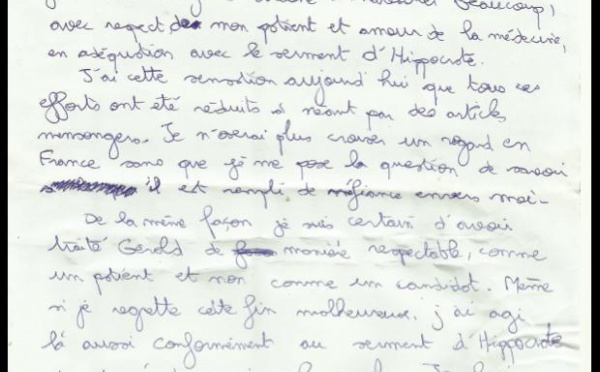 beaucoup,
avec respect de mon patient et amour de la médecine,
en adéquation avec le serment d'Hippocrate.
J'ai cette sensation aujourd'hui que tous ces
efforts ont été réduits à néant par des articles
mensongers. Je n'oserai plus croiser un regard en
France sans que je me pose la question de savoir
s'il est rempli de méfiance envers moi.
De la même façon je suis certain d'avoir
traité Gerald de manière respectable, comme
un patient et non comme un candidat. Même
si je regrette cette fin malheureuse, j'ai agi
là aussi conformément au serment d'Hippocrate